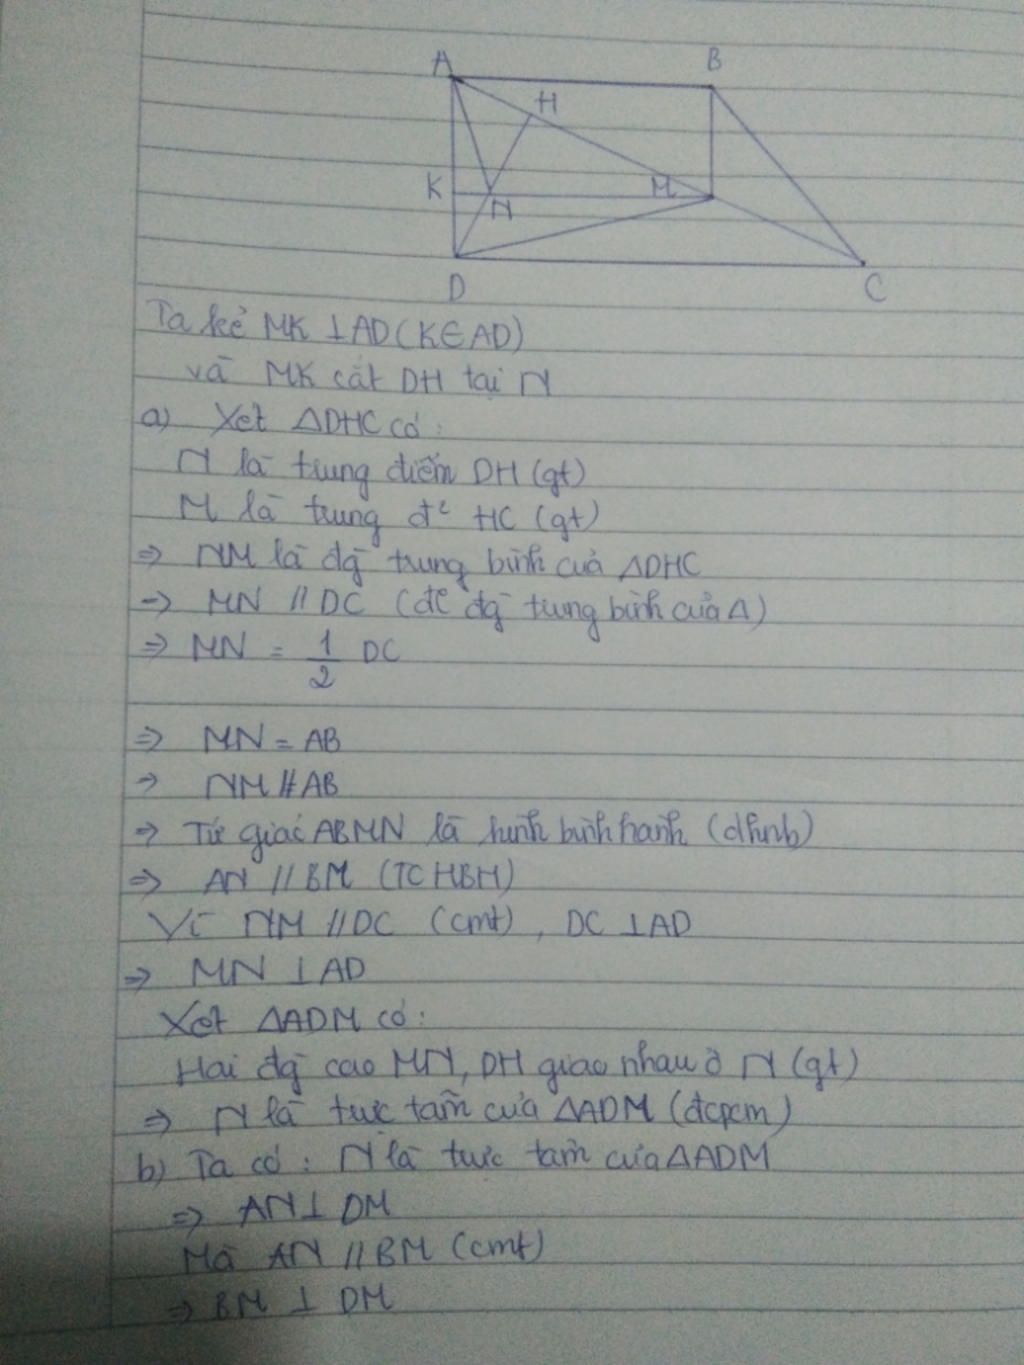 A
B
H
K
M
N
D
C
Ta kẻ MK ⊥ AD (K∈AD)
và MK cắt DH tại N
a) Xét ΔDHC có:
N là trung điểm DH (gt)
M là trung đ² HC (gt)
=> NM là đg trung bình của ΔDHC
=> MN // DC (đl đg trung bình của Δ)
=> MN = 1/2 DC
=> MN = AB
=> NM // AB
=> Tứ giác ABMN là hình bình hành (dhnb)
=> AN // BM (TC HBH)
Vì NM // DC (cmt), DC ⊥ AD
=> MN ⊥ AD
Xét ΔADM có:
Hai đg cao MN, DH giao nhau ở N (gt)
=> N là trực tâm của ΔADM (đcpcm)
b) Ta có: N là trực tâm của ΔADM
=> AN ⊥ DM
Mà AN // BM (cmt)
=> BM ⊥ DM